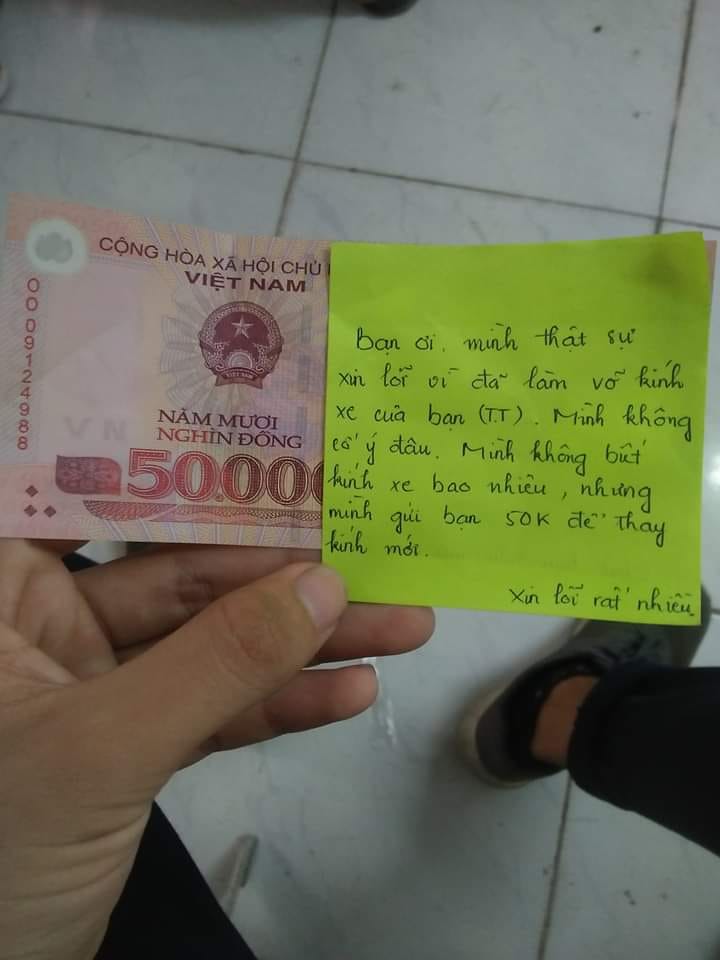 CỘNG HÒA XÃ HỘI CHỦ
VIỆT NAM
00091249 88
NĂM MƯƠI
NGHÌN ĐỒNG
50000
VN
Bạn ơi, mình thật sự
xin lỗi vì đã làm vỡ kính
xe của bạn (TT). Mình không
cố ý đâu. Mình không biết
kính xe bao nhiêu, nhưng
mình gửi bạn 50K để thay
kính mới.
Xin lỗi rất nhiều.